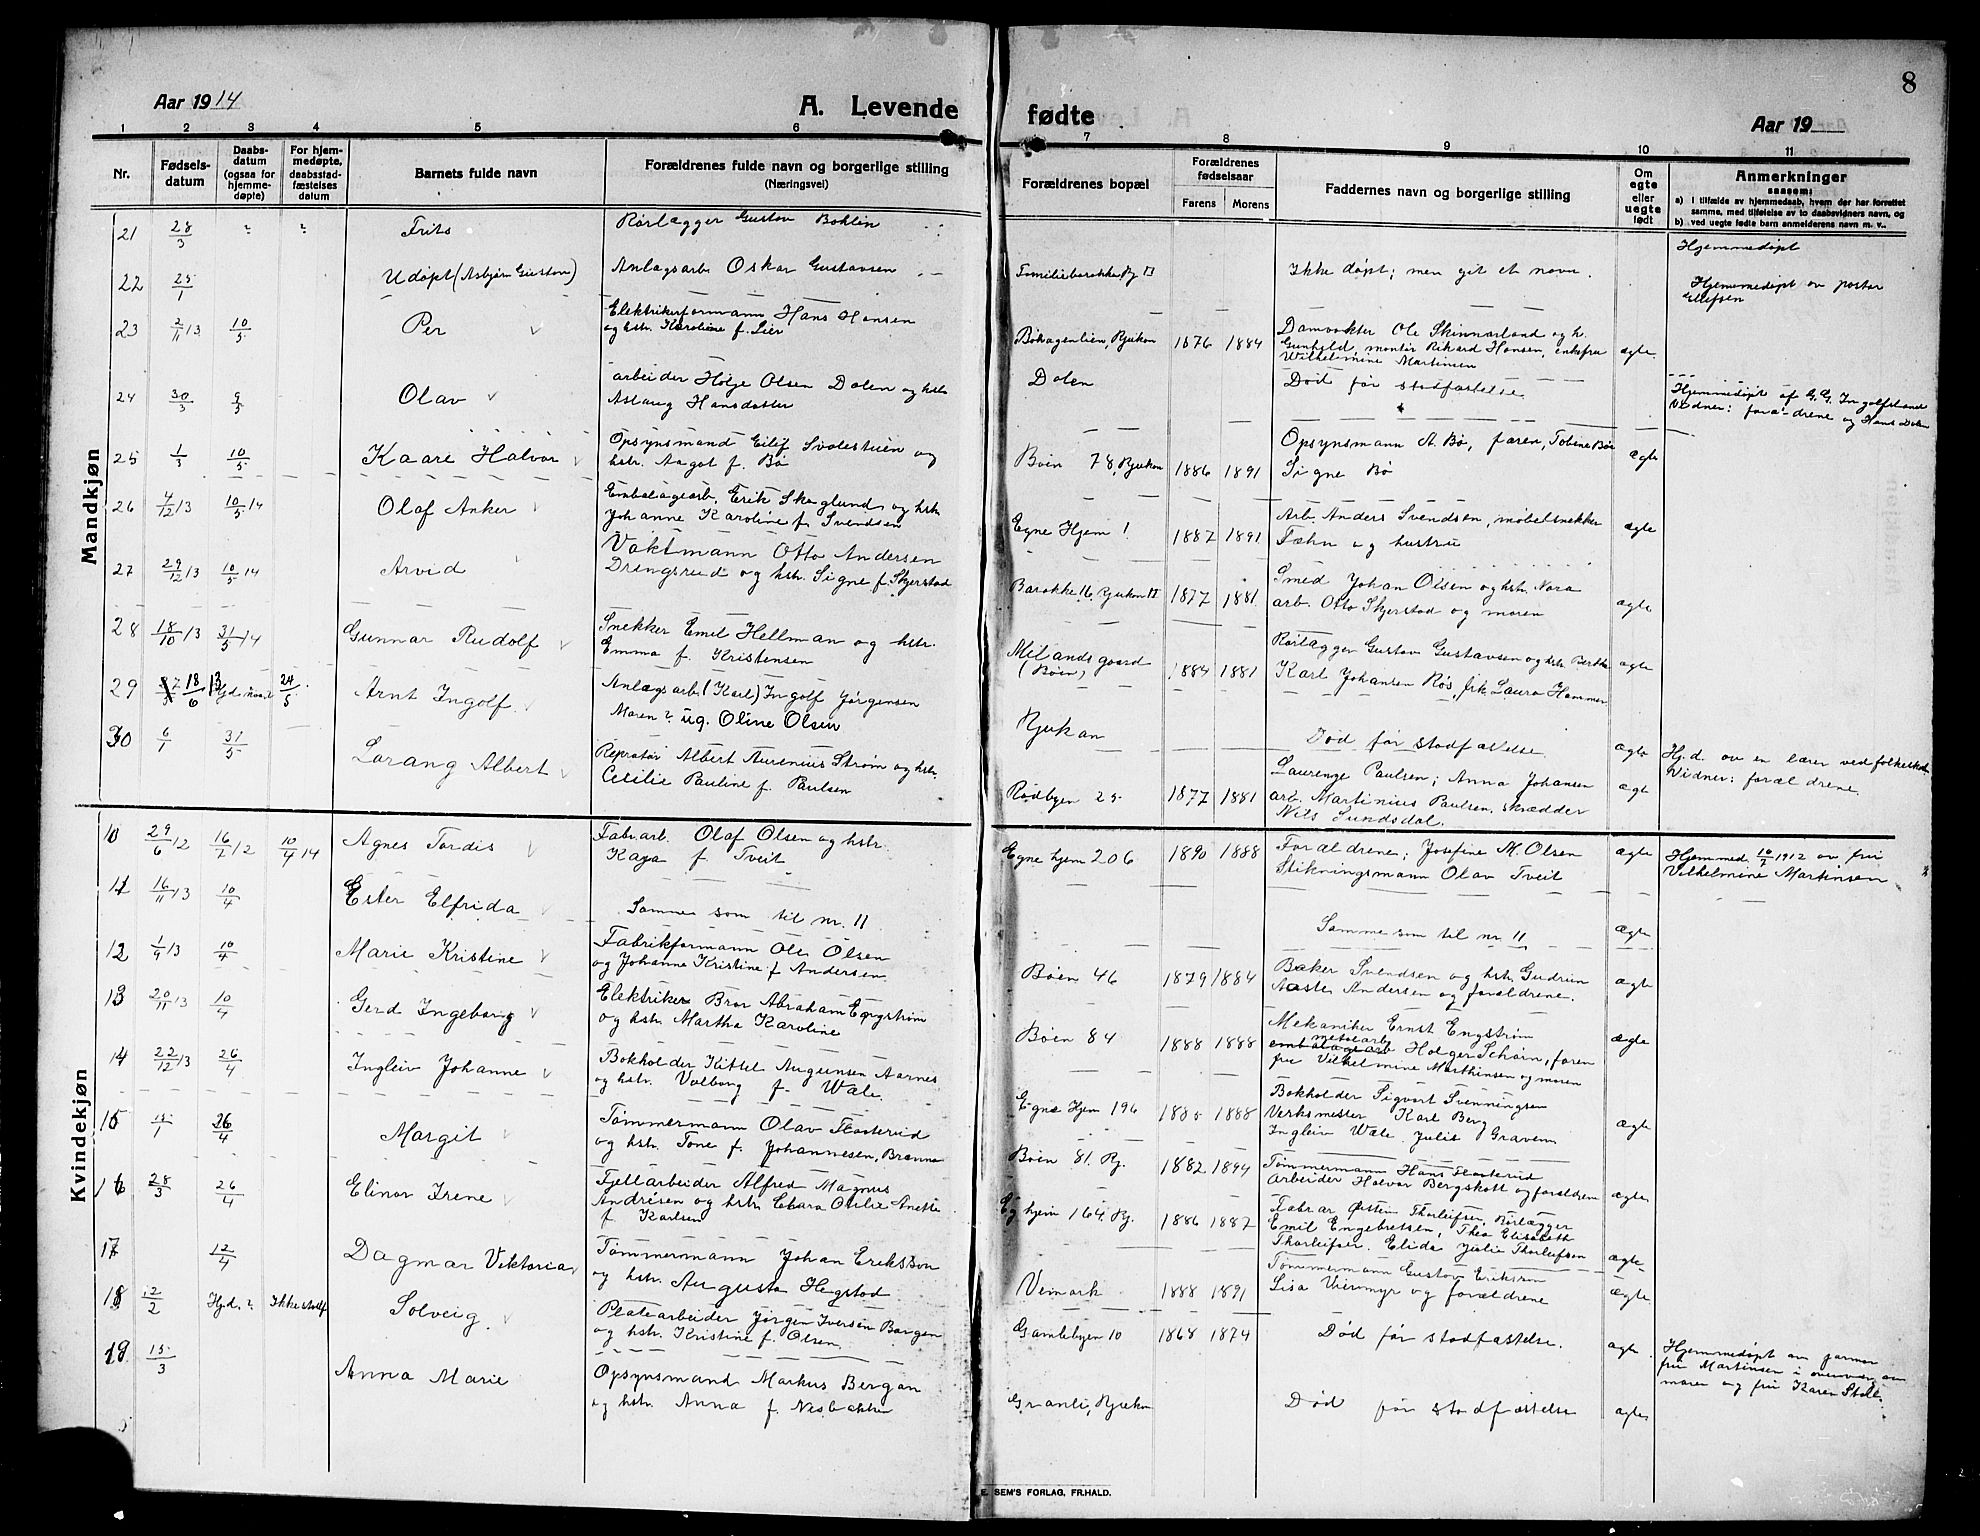 Aar 1914
A. Levende
fødte
Aar 19
8
1 2 3 4 5 6 7 8 9 10 11
Nr.
Fødsels-
datum
Daabs-
datum
(ogsaa for
hjemme-
døpte)
For hjem-
medøpte,
daabsstad-
fæstelses
datum
Barnets fulde navn
Forældrenes fulde navn og borgerlige stilling
(Næringsvei)
Forældrenes bopæl
Forældrenes
fødselsaar
Farens Morens
Faddernes navn og borgerlige stilling
Om
egte
eller
uegte
født
Anmerkninger
saasom:
a) i tilfælde av hjemmedaab, hvem der har forrettet
samme, med tilføielse av to daabsvidners navn, og
b) ved uegte fødte barn anmelderens navn m. v..
Mandkjøn
21 28/3 ? ? Frits Rørlægger Gustav Bohlin
Hjemmedøpt
22 25/1 Udøpt (Asbjørn Gustav) Anlagsarb. Oskar Gustavsen
Familiebarakke, Rj. II Ikke døpt; men git et navn.
Hjemmedøpt av pastor
Ellefsen
23 2/11 13 10/5 Per Elektrikerformann Hans Hansen
og hstr. Karoline f. Lier
Bøhagenlien, Rjukan 1876 1884 Damvokter Ole Skinnarland og h.
Gunhild, montør Rikard Hansen, enkefru
Wilhelmine Martinsen ægte
24 30/3 9/5 Olav arbeider Hølje Olsen Dalen og hstr.
Aslaug Hansdatter
Dalen Død før stadfæstelse
Hjemmedøpt af G. G. Ingolfsland
Vidner: forældrene og Hans Dalen
25 1/3 10/5 Kaare Halvor Opsynsmand Eilef Svalestuen og
hstr. Aagot f. Bø
Bøen 78, Rjukan 1886 1891 Opsynsmann A. Bø, faren, Tobine Bø
Signe Bø ægte
26 4/12 13 10/5 14 Olaf Anker Embalagearb. Erik Skoglund og hstr.
Johanne Karoline f. Svendsen
Egne Hjem 1 1887 1891 Arb. Anders Svendsen, møbelsnekker
Fæhn og hustru ægte
27 29/12 13 10/5 14 Arvid Vaktmann Otto Andersen
Drengsrud og hstr. Signe f. Skjerstad
Barakke 16, Rjukan II 1877 1881 Smed Johan Olsen og hstr. Nora
arb. Otto Skjerstad og moren ægte
28 18/10 13 31/5 14 Gunnar Rudolf Snekker Emil Hellman og hstr.
Emma f. Kristensen
Milandsgaard
(Bøen) 1884 1881 Rørlægger Gustav Gustavsen og hstr. Bertha
Karl Johansen Røs, frk. Laura Hammer ægte
29 18/6 13 24/5 Arnt Ingolf Anlægsarb. (Karl) Ingolf Jørgensen
Maren? ug. Oline Olsen
Rjukan Død før stadfæstelse ægte
Hj.d. av en lærer ved folkeskolen
Vidner: forældrene.
30 6/1 31/5 Lorang Albert Repratør Albert Aurenius Strøm og hstr.
Cecilie Pauline f. Paulsen
Rødbyen 25 1877 1881 Laurenze Paulsen; Anna Johansen
arb. Martinius Paulsen, skrædder
Nils Sundsdal. ægt
Kvindekjøn
10 29/6 12 16/7 12 10/4 14 Agnes Tordis Fabr.arb. Olaf Olsen og hstr.
Kaya f. Tveit
Egne hjem 206 1890 1888 Forældrene; Josefine M. Olsen
Stikningsmann Olav Tveit ægte
Hjemmed. 16/7 1912 av fru
Vilhelmine Martinsen
11 16/11 13 10/4 Ester Elfrida Samme som til nr. 11
Samme som til nr. 11 ægte
12 1/9 13 10/4 Marie Kristine Fabrikformann Ole Olsen
og Johanne Kristine f. Andersen
Bøen 46 1879 1884 Baker Svendsen og hstr. Gudrun
Aaste Andersen og forældrene. ægte
13 20/11 13 10/4 Gerd Ingeborg Elektriker Bror Abraham Engstrøm
og hstr. Martha Karoline
Bøen 84 1888 1888 Mekaniker Ernst Engstrøm
metalarb.
embalagearb Holger Schørn, faren
fru Vilhelmine Marthinsen og moren ægte
14 22/12 13 26/4 Ingleiv Johanne Bokholder Kittel Augunsen Aarnes
og hstr. Valborg f. Wale.
Egne Hjem 196 1885 1888 Bokholder Sigvart Svenningsen
Verksmester Karl Berg
Ingleiv Wale. Julie Gravem ægte
15 15/1 26/4 Margit Tømmermann Olav Flosterud
og hstr. Tone f. Johannesen, Brenna
Bøen 81. Rj. 1882 1894 Tømmermann Hans Flosterud
arbeider Halvor Bergskott og forældrene ægte
16 28/3 26/4 Elinor Irene Fjellarbeider Alfred Magnus
Andresen og hstr. Chara Otilie Anette
f. Karlsen
Eg hjem 164. Rj. 1886 1887 Fabr.ar Østein Thorleifsen, Rørlægger
Emil Engebretsen, Thea Elisabeth
Thorleifsen. Elida Julie Thorleifsen ægte
17 12/4 Dagmar Viktoria Tømmermann Johan Eriksson
og hstr. Augusta Hegstad
Veimark 1888 1891 Tømmermann Gustav Eriksson
Lisa Viermyr og forældrene ægte
18 12/2 Hj.d. ? Ikke stadf Solveig Platearbeider Jørgen Iversen Borgen
og hstr. Kristine f. Olsen.
Gamlebyen 10 1868 1874 Død før stadfæstelse. ægte
Hjemmedøpt av jormor
fru Martinsen i overvær av
moren og fru Karen Stoll.
19 15/3 Anna Marie Opsynsmand Markus Bergan
og hstr. Anna f. Nesbakken
Granli, Rjukan Død før stadfæstelse ægte
E. SEM'S FORLAG, FR.HALD.